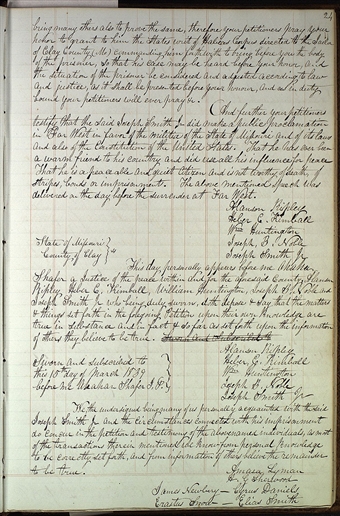 24
being many others also to prove the same, therefore your petitioners pray your
honor to grant to him the States writ of Habeas Corpus directed to the Jailor
of Clay County (Mo) commanding him forthwith to bring before you the body
of the prisoner, so that his case may be heard before your honor, and
the situation of the prisoner be considered and adjusted according to law
and justice, as it shall be presented before your honour, and as in duty
bound your petitioners will ever pray &c.
And further your petitioners
testify that the said Joseph Smith Jr did make a public proclamation
in Far West in favor of the militia of the State of Missouri and of its laws
and also of the Constitution of the United States. That he has ever been
a warm friend to his country and did use all his influence for peace
That he is a peaceable and quiet citizen and is not worthy of death, of
stripes, bonds or imprisonment. The above mentioned speech was
delivered on the day before the surrender at Far West.
Alanson Ripley
Heber C. Kimball
Wm Huntington
Joseph B. Noble
Joseph Smith Jr
State of Missouri
County of Clay
This day personally appeared before me Abraham
Shafer a Justice of the peace within and for the aforesaid County, Alanson
Ripley, Heber C. Kimball, William Huntington, Joseph B. Noble and
Joseph Smith Jr who being duly sworn, doth depose & say that the matters
& things set forth in the foregoing petition upon their own knowledge are
true in substance and in fact & so far as set forth upon the information
of others they believe to be true. Sworn and Subscribed to
Alanson Ripley
Heber C. Kimball
Wm Huntington
Joseph B. Noble
Joseph Smith Jr
Sworn and subscribed to
this 15th day of March 1839
before me Abraham Shafer J.P.
We the undersigned being many of us personally acquainted with the said
Joseph Smith Jr and the circumstances connected with his imprisonment
do concur in the petition and testimony of the above named individuals, as most
of the transactions therein mentioned we know from personal knowledge
to be correctly set forth, and from information of others believe the remainder
to be true.
Amasa Lyman
H. G. Sherwood
James Newberry Cyrus Daniels
Erastus Snow Elias Smith